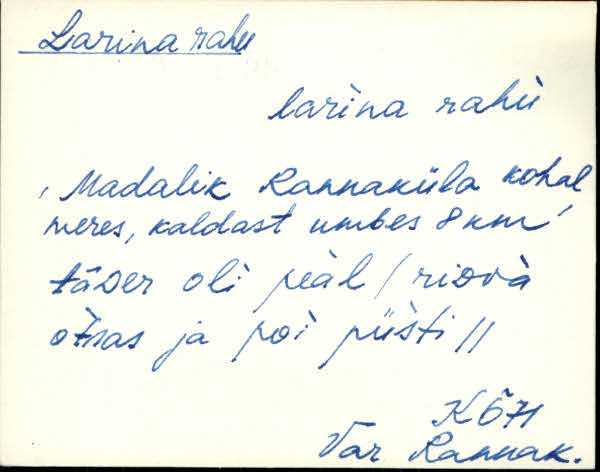 Larina rahu
larìna rahù
'Madalik Rannaküla kohal
meres, kaldast umbes 8 km'
tä̀ʙer oli pèäl / riʙ̀và
òtsas ja poì pǜsti //
KÕ71
Var Rannak.